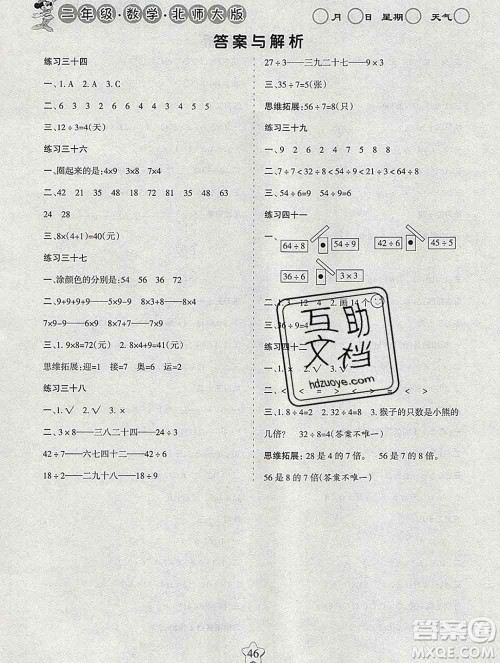 二年级·数学·北师大版
月 日 星期 天气
答案与解析
练习三十四
一、1. A 2. A 3. C
二、6 3 3 2 4 9 6 6
三、12÷3=4(天)
练习三十六
一、圈起来的是:4×9 3×9 4×8
二、42 21 35 48 32 54 40
24 28
三、8×(4+1)=40(元)
练习三十七
一、涂颜色的分别是:54 56 36 72
二、9+9+9+9——9×4 8×9-8——8×8
7×9-7——9×6 9×8-9——9×7
三、1. 9×8=72(元) 2. 9×9=81(元)
思维拓展:迎=1 接=7 奥=6 运=4
练习三十八
一、√ × √ ×
二、3×8——三八二十四——24÷3
42÷7——六七四十二——42÷6
18÷2——二九十八——18÷9
27÷3——三九二十七——9×3
三、5×7=35(张)
思维拓展:56÷7=8(只)
练习三十九
一、9 8 9 4 8
二、7÷7<32÷8<54÷9<49÷7<64÷8
三、54÷9=6(元) 54÷6=9(元)
练习四十一
一、 64÷8 54÷9 42÷6 45÷5
36÷6 3×3
二、1. 3 12 4 2. 画 14 个
三、36÷9=4(元)
练习四十二
一、√ × √
三、1. 8÷4=2 2. 32÷4=8 3. 猴子的只数是小熊的
几倍? 32÷8=4(答案不唯一)
思维拓展:28 是 4 的 7 倍。 56 是 7 的 8 倍。
56 是 8 的 7 倍(答案不唯一)
互助文档
hdzuoye.com
46